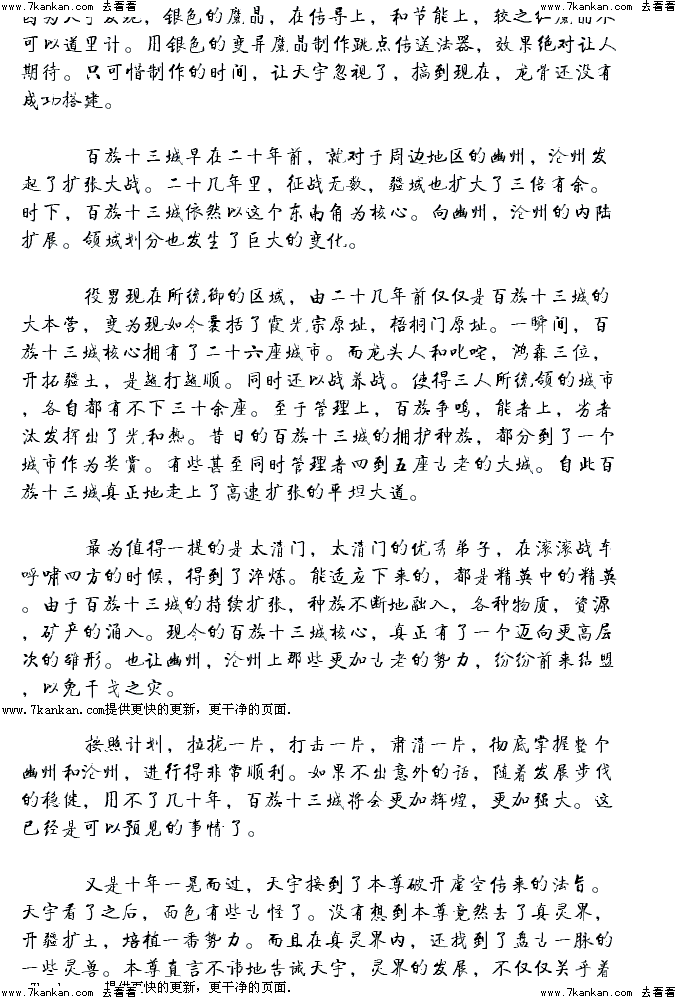 www.7kankan.com 去看看 www.7kankan.com 去看看 www.7kankan.com 去看看 www.7kankan.com 去看看 www.7kankan.com 去看看
因为天宇发现，银色的魔晶，在传导上，和节能上，较之红魔晶不
可以道里计。用银色的变异魔晶制作跳点传送法器，效果绝对让人
期待。只可惜制作的时间，让天宇忽视了，搞到现在，龙骨还没有
成功搭建。
百族十三城早在二十年前，就对于周边地区的幽州，沧州发
起了扩张大战。二十几年里，征战无数，疆域也扩大了三倍有余。
时下，百族十三城依然以这个东南角为核心。向幽州，沧州的内陆
扩展。领域划分也发生了巨大的变化。
役男现在所统御的区域，由二十几年前仅仅是百族十三城的
大本营，变为现如今囊括了霞光宗原址，梧桐门原址。一瞬间，百
族十三城核心拥有了二十六座城市。而龙头人和叱咤，鸿森三位，
开拓疆土，是越打越顺。同时还以战养战。使得三人所统领的城市
，各自都有不下三十余座。至于管理上，百族争鸣，能者上，劣者
汰发挥出了光和热。昔日的百族十三城的拥护种族，都分到了一个
城市作为奖赏。有些甚至同时管理者四到五座古老的大城。自此百
族十三城真正地走上了高速扩张的平坦大道。
最为值得一提的是太清门，太清门的优秀弟子，在滚滚战车
呼啸四方的时候，得到了淬炼。能适应下来的，都是精英中的精英
。由于百族十三城的持续扩张，种族不断地融入，各种物质，资源
，矿产的涌入。现今的百族十三城核心，真正有了一个迈向更高层
次的雏形。也让幽州，沧州上那些更加古老的势力，纷纷前来结盟
，以免干戈之灾。
www.7kankan.com提供更快的更新，更干净的页面.
按照计划，拉拢一片，打击一片，肃清一片，彻底掌握整个
幽州和沧州，进行得非常顺利。如果不出意外的话，随着发展步伐
的稳健，用不了几十年，百族十三城将会更加辉煌，更加强大。这
已经是可以预见的事情了。
又是十年一晃而过，天宇接到了本尊破开虚空传来的法旨。
天宇看了之后，面色有些古怪了。没有想到本尊竟然去了真灵界，
开疆扩土，培植一番势力。而且在真灵界内，还找到了盘古一脉的
一些灵兽。本尊直言不讳地告诫天宇，灵界的发展，不仅仅关乎着
提供更快的更新，更干净的页面.
www.7kankan.com 去看看 www.7kankan.com 去看看 www.7kankan.com 去看看 www.7kankan.com 去看看 www.7kankan.com 去看看